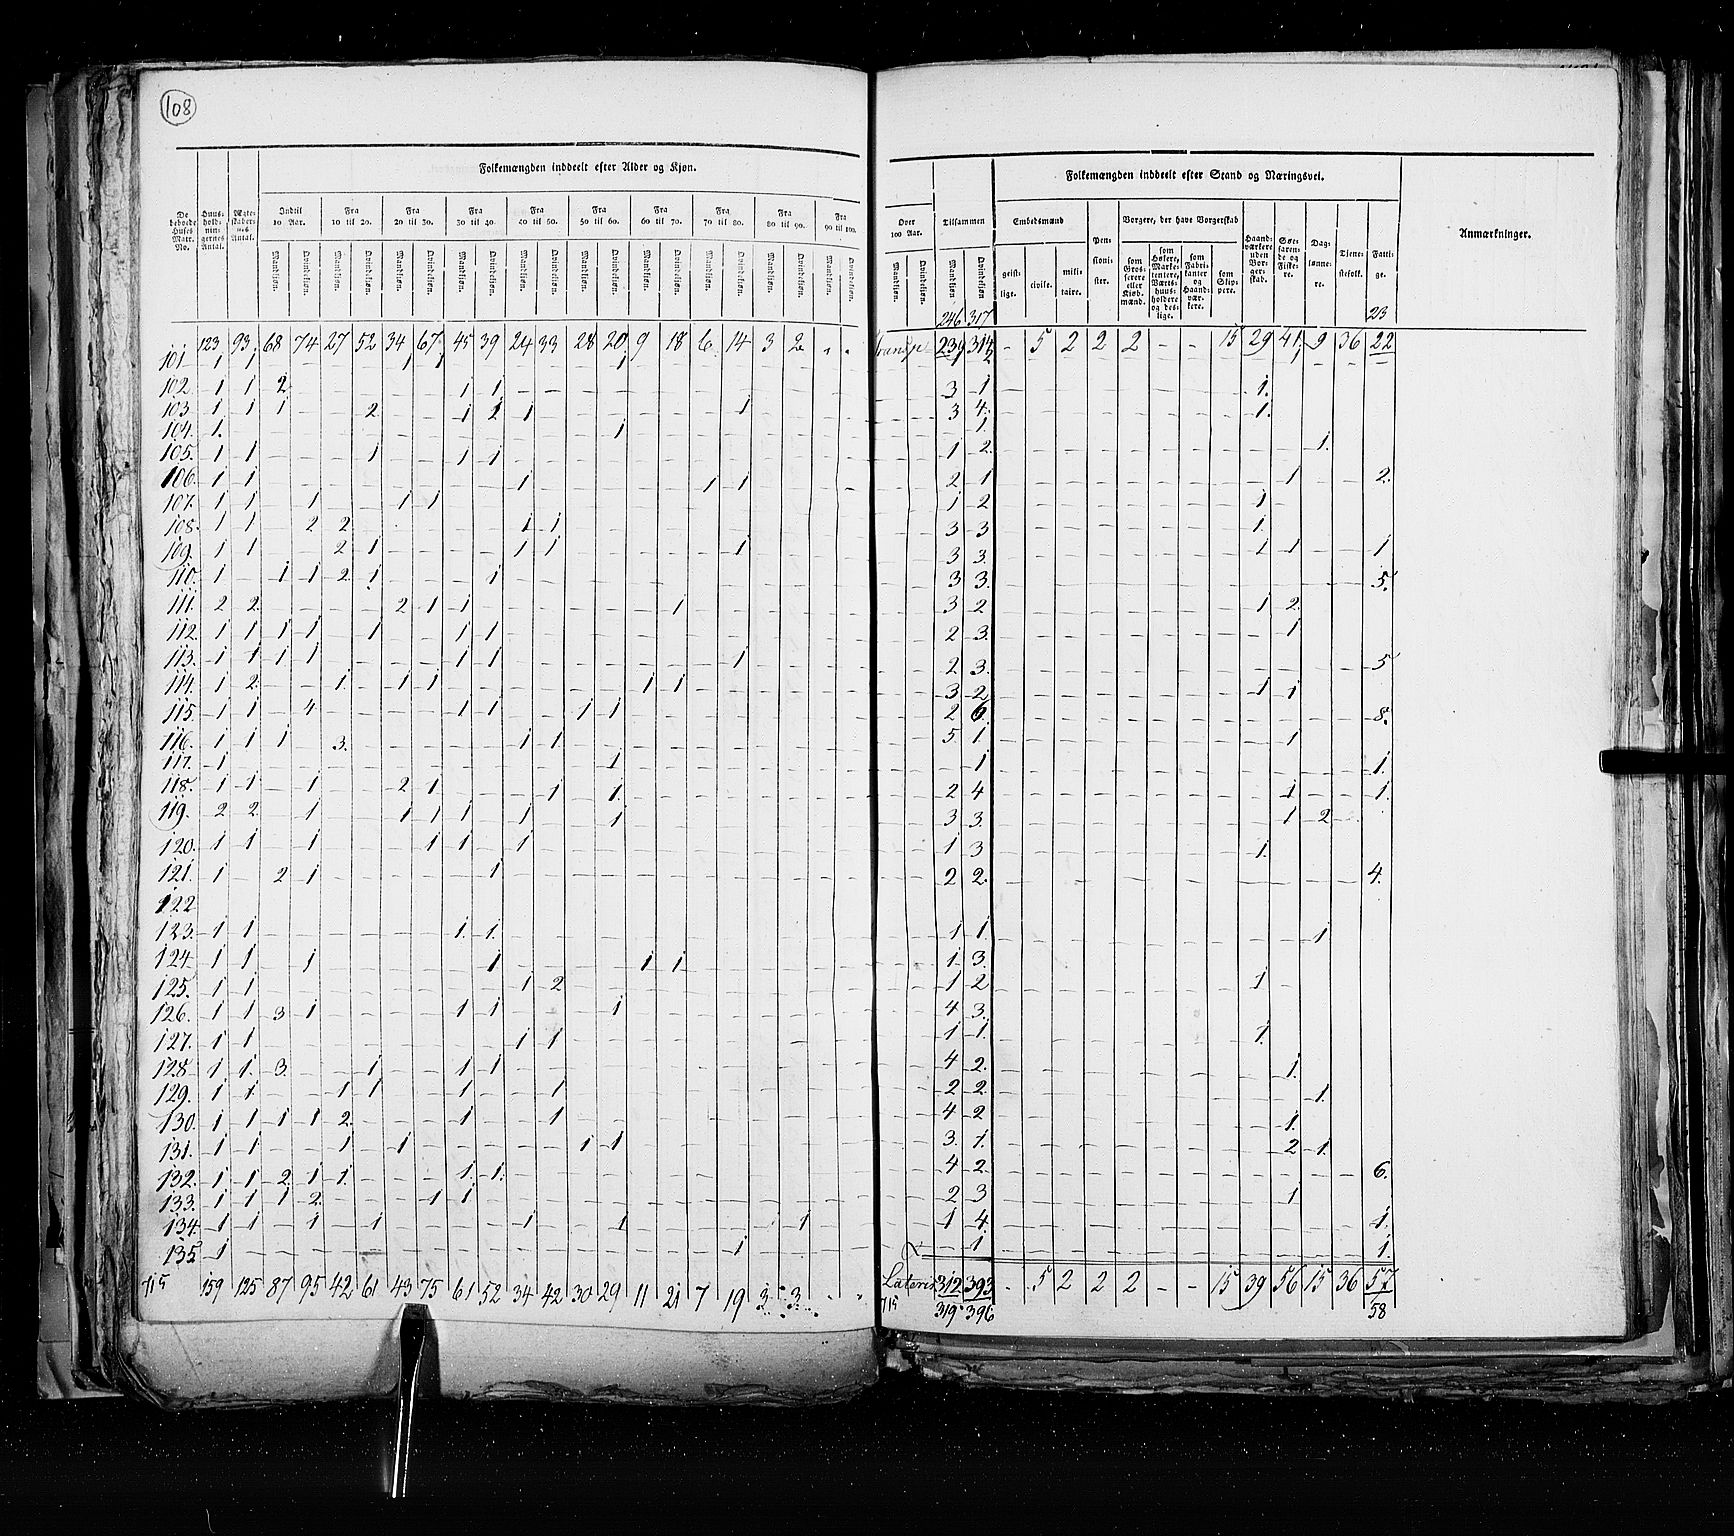 108
Folkemængden inddeelt efter Alder og Kjøn.
Folkemængden inddeelt efter Stand og Næringsvei.
De beboede Huses Matr. No.
Huusholdningernes Antal.
Ægteskabernes Antal.
Indtil 10 Aar.
Fra 10 til 20.
Fra 20 til 30.
Fra 30 til 40.
Fra 40 til 50.
Fra 50 til 60.
Fra 60 til 70.
Fra 70 til 80.
Fra 80 til 90.
Fra 90 til 100.
Over 100 Aar.
Tilsammen
Mandkjøn. Qvindekjøn.
Embedsmænd
geistlige. civile. militaire.
Pensionister.
Borgere, der have Borgerskab
som Grosserere eller Kjøbmænd.
som Høkere, Marketentere, Værtshuusholdere og deslige.
som Fabrikanter og Haandværkere.
som Skippere.
Haandværkere uden Borgerskab.
Søefarende og Fiskere.
Daglønnere.
Tjenestefolk.
Fattige.
Anmærkninger.
246 317 23
123 93 68 74 27 52 34 67 45 39 24 33 28 20 9 18 6 14 3 2 - - Transp. 239 314 - 5 2 2 2 - - 15 29 41 9 36 22
101 1 1 - - - - 1 1 - - - - - 1
102. 1 1 2 - - - - - 1 1 - 3 1 1.
103. 1 1 1 - - 2 - - 1 2 1 - - - - - - 1 3 4. 1.
104. 1. - - - - - - - - - - - - 1 1.
105. 1 1 - - - 1 - - 1 1 1 2. 1.
106. 1 1 - - - - - - - - 1 - - - - - 1 1 2 1 1 2.
107. 1 1 - 1 - - 1 1 1 2 1
108. 1 1 - 2 2 - - - - - 1 1 3 3 1.
109. 1 1 - - 2 1 - - - - 1 1 - - - - - 1 3 3. 1 1 1
110. 1 - 1 1 2 1 - - - 1 3 3. 5.
111. 2 2. - - - - 2 1 1 - - - - - - 1 3 2 1 2.
112. 1 1 1 1 - 1 - - 1 1 2 3. 1
113. 1 1 1 1 - - - - 1 1 - - - - - - - 1 2 3. 5
114. 1 2. - - 1. - 1 1 - - - - - - 1 1 3 2 1 1
115. 1 1 - 4 - - - - 1 1 - - 1 1 2 6. 8.
116. 1 1 1 - 3. - - - - - 1 1. 5. 1. 1
117. 1 - - - - - - - - - - - - 1. 1 1.
118. 1 1 - 1 - - 2 1 - - - 1 - 1. 2 4 1 1.
119. 2 2. - 1 - - 1 1 1 - 1 - - 1 3 3. 1 2
120. 1 1 - 1 - - - 1 1 - 1 1 3 1.
121. 1 - 2 1 - - - - - 1 2 2. 4.
122
123. 1 1 - - - - - - 1. 1. 1 1. 1
124 1 1 - 1 - - - - - 1 - - - - 1 1 1 3. -
125. 1 1 - - - - - - - - 1 2 1 2 1
126. 1 1 3 1 - - - - 1 1 - - - 1 4 3.
127. 1 1 - - - - - - - - 1 1 1 1. 1.
128 1 1. 3. - - 1 - - 1 1 4 2. 1.
129. 1 1. - - 1 1 - - 1 - - 1 2 2. 1.
130. 1 1 1 1 2. - - - 1 - - 1 4 2 1.
131. 1 1 - - 1 - 1 - - - - - 1 1 3. 1. 2 1.
132. 1 1 2 1 1. - - - 1. 1. 4 2. 6.
133. 1 1 1 2. - - - 1 1 2 3 1
134 1 1 - 1 - 1 - - - - 1 - - 1 - - - - - 1 1 4. 1.
135 1 - - - - - - - - - - - - - - - - 1 1 1.
715 159 125 87 95 42 61 43 75 61 52 34 42 30 29 11 21 7 19 3 3 - - Lateris 312 393 - 5 2 2 2 - - 15 39 56 15 36 57
715 319 396 58